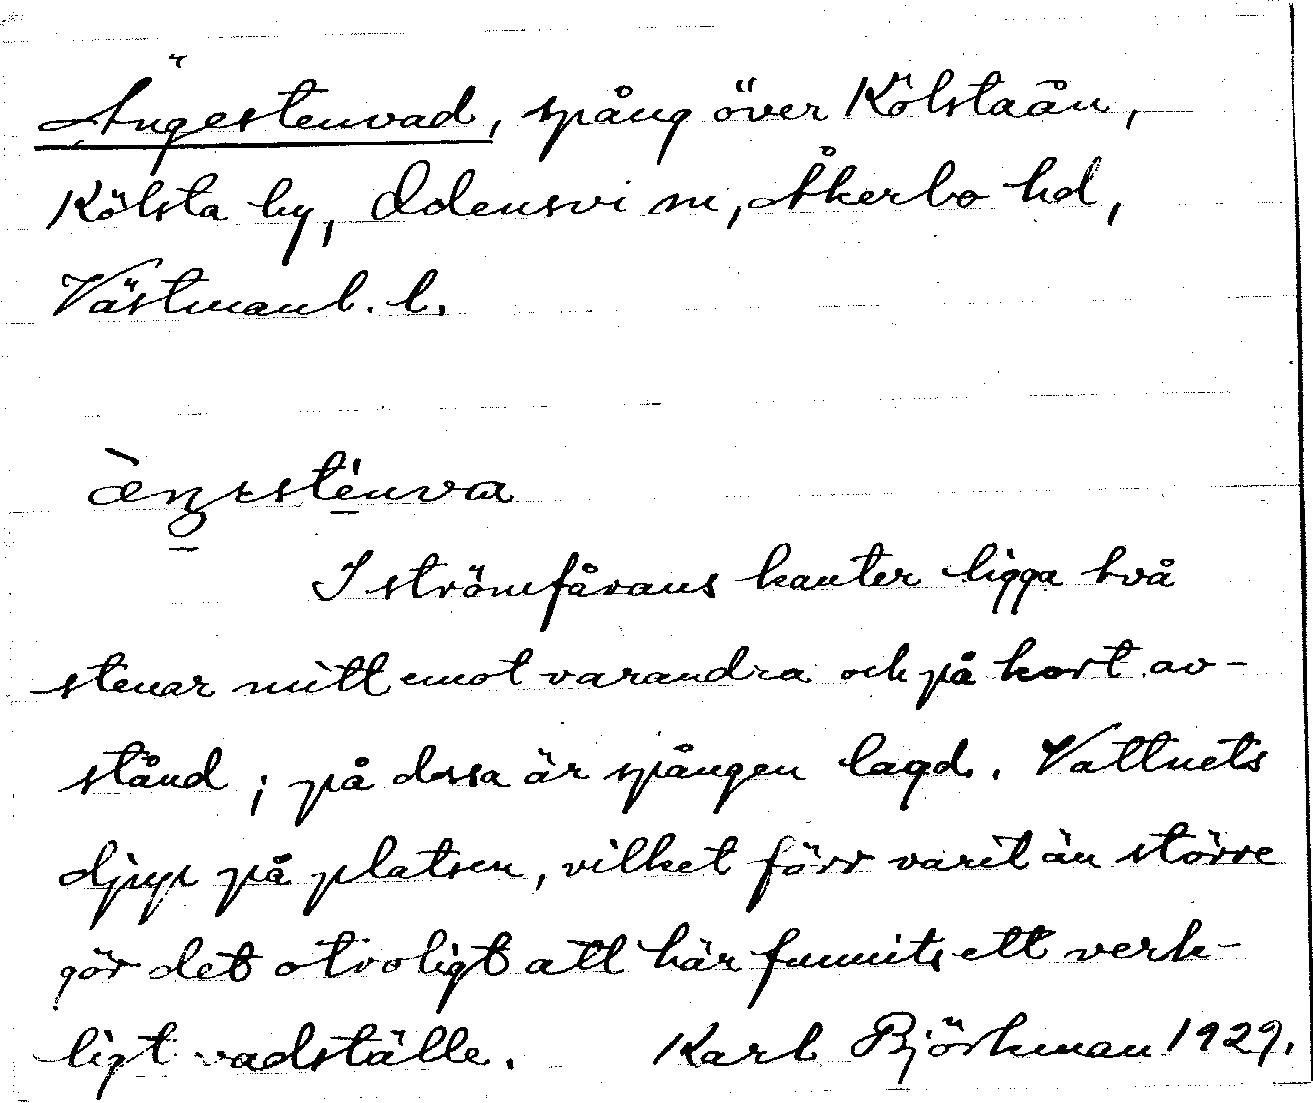 Ängestenvad, spång över Kölstaån,
Kölsta by, Odensvi sn, Åkerbo hd,
Västmanl. l.
æ̀ŋesténva
I strömfårans kanter ligga två
stenar mitt emot varandra och på kort av-
stånd; på dessa är spången lagd. Vattnets
djup på platsen, vilket förr varit än större
gör det otroligt att här funnits ett verk-
ligt vadställe. Karl Björkman 1929.